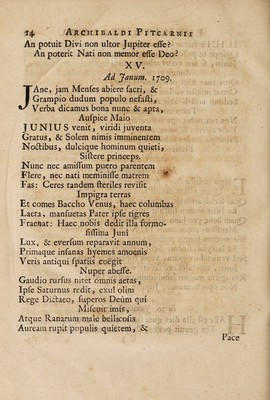 14 ARCHIBALDI PITCARNII
An potuit Divi non ultor Jupiter esse?
An poterit Nati non memor esse Deo?
XV.
Ad Janum. 1709.
JAne, jam Menses abiere sacri, &
Grampio dudum populo nefasti,
Verba dicamus bona nunc & apta,
Auspice Maio
JUNIUS venit, viridi juventa
Gratus, & Solem nimis imminentem
Noctibus, dulcique hominum quieti,
Sistere princeps.
Nunc nec amissum puero parentem
Flere, nec nati meminisse matrem
Fas: Ceres tandem steriles revisit
Impigra terras
Et comes Baccho Venus, haec columbas
Laeta, mansuetas Pater ipse tigres
Fraenat: Haec nobis dedit illa formo-
sissima Juni
Lux, & eversum reparavit annum,
Primaque insanas hyemes amoenis
Veris antiqui spatiis coegit
Nuper abesse.
Gaudio rursus nitet omnis aetas,
Ipse Saturnus redit, exul olim
Rege Dictaeo, superos Deûm qui
Miscuit imis,
Atque Ranarum male bellicosis
Auream rupit populis quietem, &
Pace